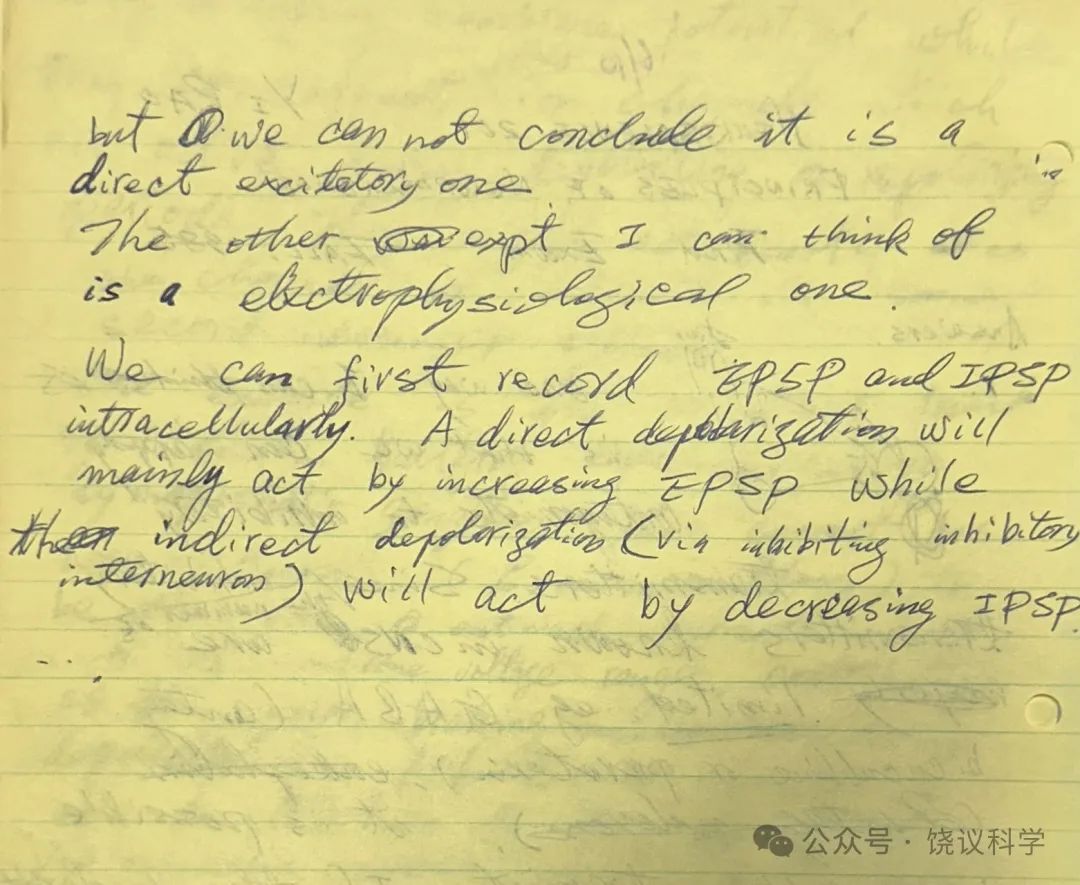 but we can not conclude it is a
direct excitatory one
The other expt I can think of
is a electrophysiological one.
We can first record EPSP and IPSP
intracellularly. A direct depolarization will
mainly act by increasing EPSP while
indirect depolarization (via inhibiting inhibitory
interneuron) will act by decreasing IPSP.
公众号·饶议科学